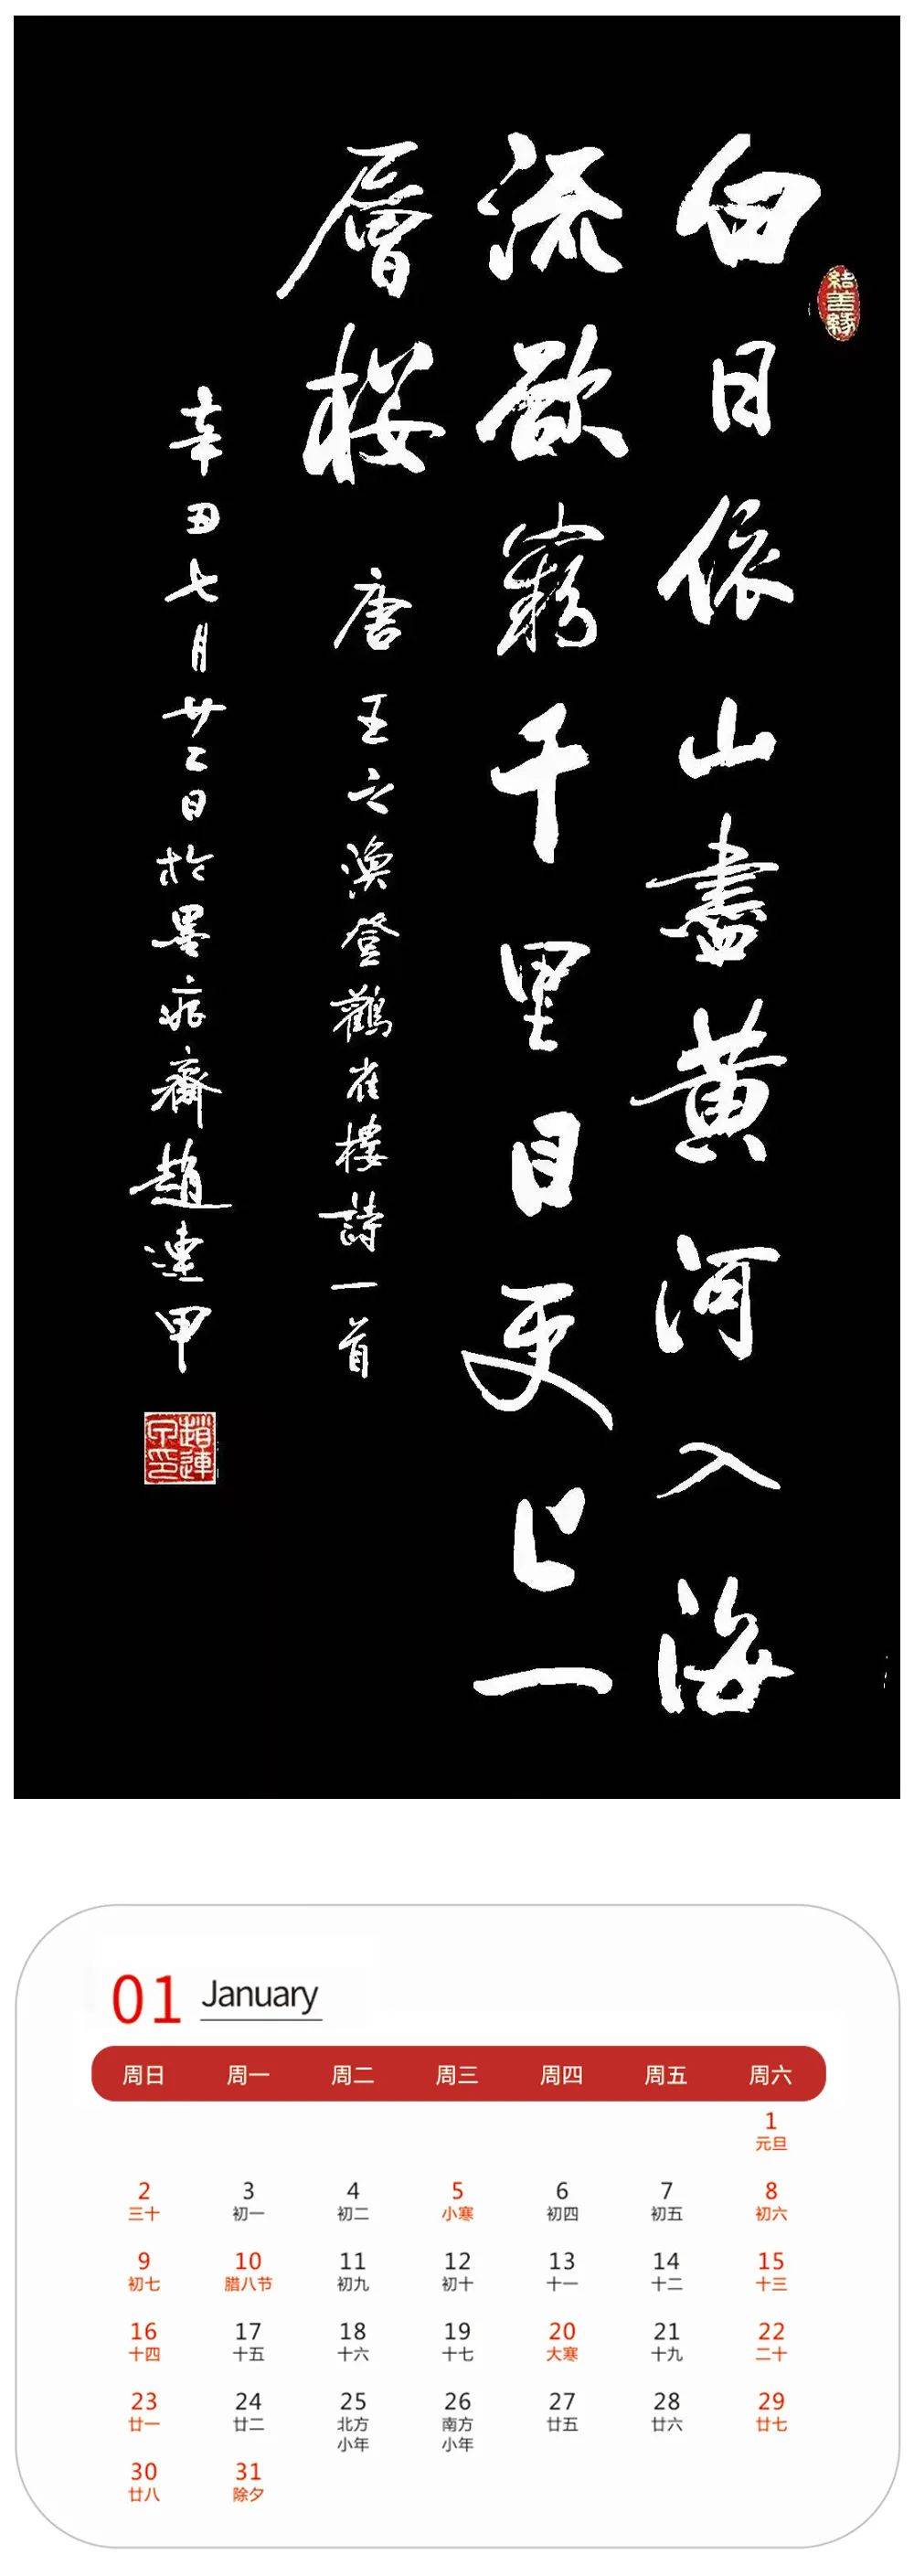 結善緣
白日依山盡黃河入海
流欲窮千里目更上一
層樓
唐王之渙登鸛雀樓詩一首
辛丑七月廿二日於墨痕齋趙連甲
趙連
甲印
01 January
周日 周一 周二 周三 周四 周五 周六
1
元旦
2 3 4 5 6 7 8
三十 初一 初二 小寒 初四 初五 初六
9 10 11 12 13 14 15
初七 腊八节 初九 初十 十一 十二 十三
16 17 18 19 20 21 22
十四 十五 十六 十七 大寒 十九 二十
23 24 25 26 27 28 29
廿一 廿二 北方 南方 廿五 廿六 廿七
小年 小年
30 31
廿八 除夕